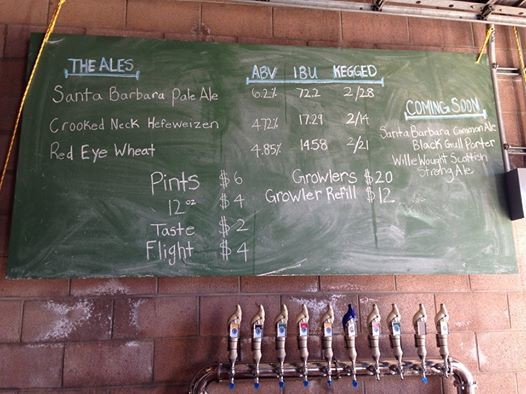 THE ALES ABV IBU KEGGED
Santa Barbara Pale Ale 6.2% 72.2 2/28
Crooked Neck Hefeweizen 4.72% 17.29 2/14
Red Eye Wheat 4.85% 14.58 2/21
Pints $6
12 oz $4
Taste $2
Flight $4
Growlers $20
Growler Refill $12
COMING SOON
Santa Barbara Common Ale
Black Gull Porter
Wille Wought Scottish
Strong Ale